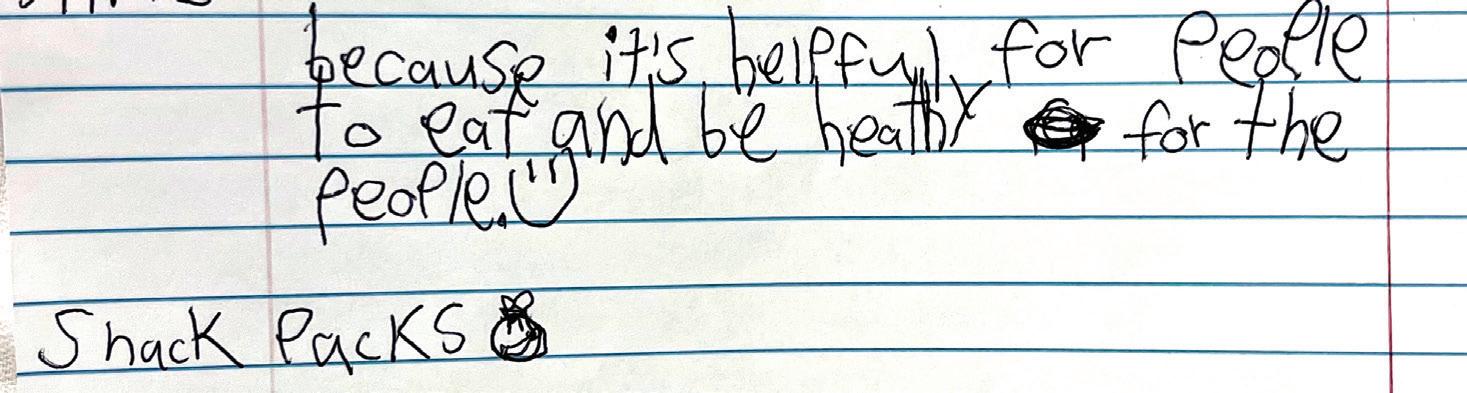 because it's helpful for people
to eat and be heathy for the
people.
Snack Packs